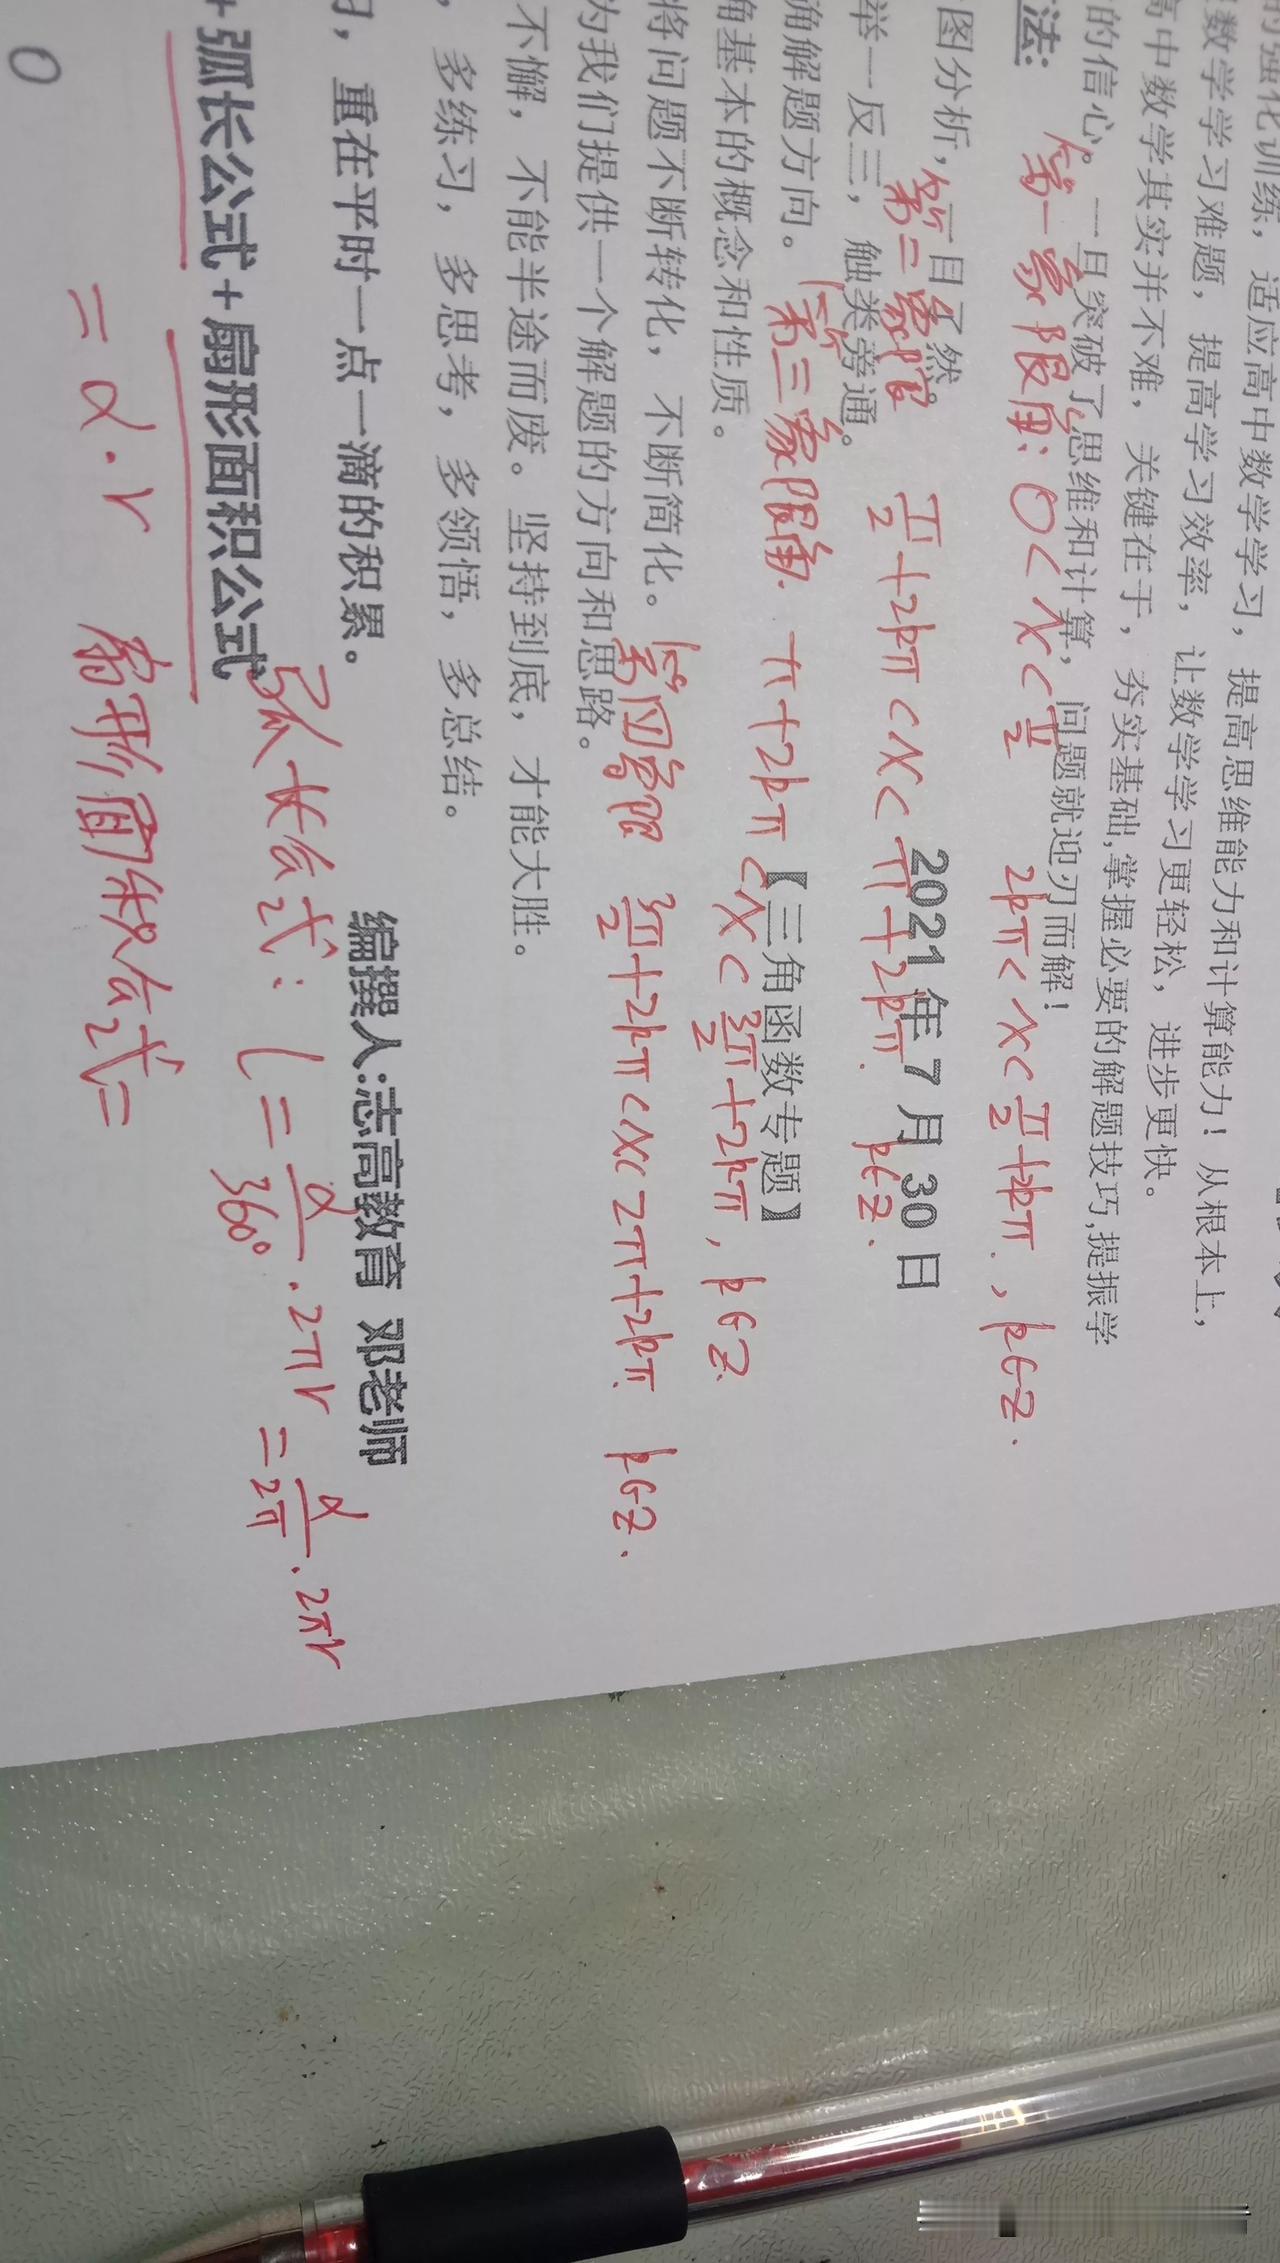 的强化训练，适应高中数学学习，提高思维能力和计算能力！从根本上，
数学学习难题，提高学习效率，让数学学习更轻松，进步更快。
高中数学其实并不难，关键在于，夯实基础,掌握必要的解题技巧,提振学
的信心。一旦突破了思维和计算，问题就迎刃而解！
法:
第一象限角: 0<x<π/2 2kπ<x<π/2+2kπ, k∈Z.
图分析,一目了然。
2021年7月30日
第二象限 π/2+2kπ<x<π+2kπ. k∈Z.
举一反三，触类旁通。
角解题方向。
【三角函数专题】
第三象限角. π+2kπ<x<3π/2+2kπ, k∈Z.
角基本的概念和性质。
将问题不断转化，不断简化。
第四象限 3π/2+2kπ<x<2π+2kπ. k∈Z.
为我们提供一个解题的方向和思路。
不懈，不能半途而废。坚持到底，才能大胜。
，多练习，多思考，多领悟，多总结。
，重在平时一点一滴的积累。
编撰人:志高教育 邓老师
+弧长公式+扇形面积公式
弧长公式: l=α/360°·2πr=α/2π·2πr
=α·r 扇形面积公式=